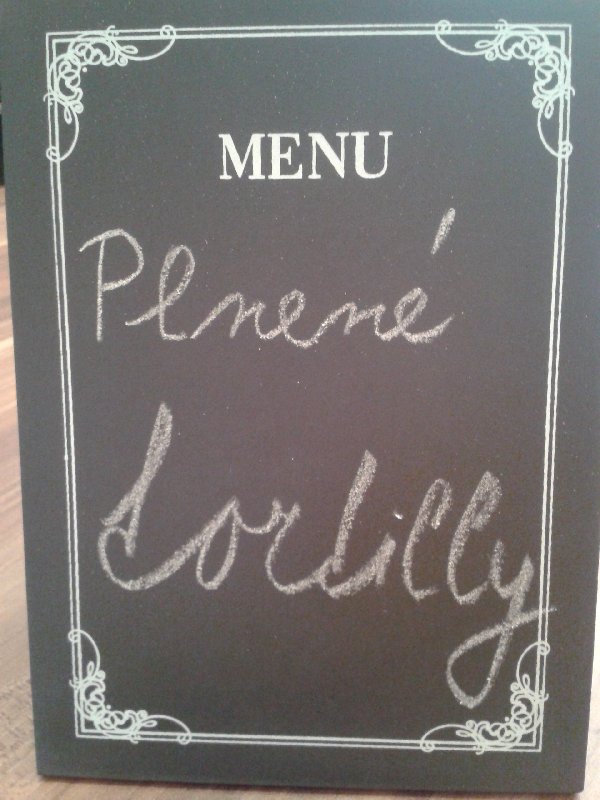 MENU
Plnené
tortilly